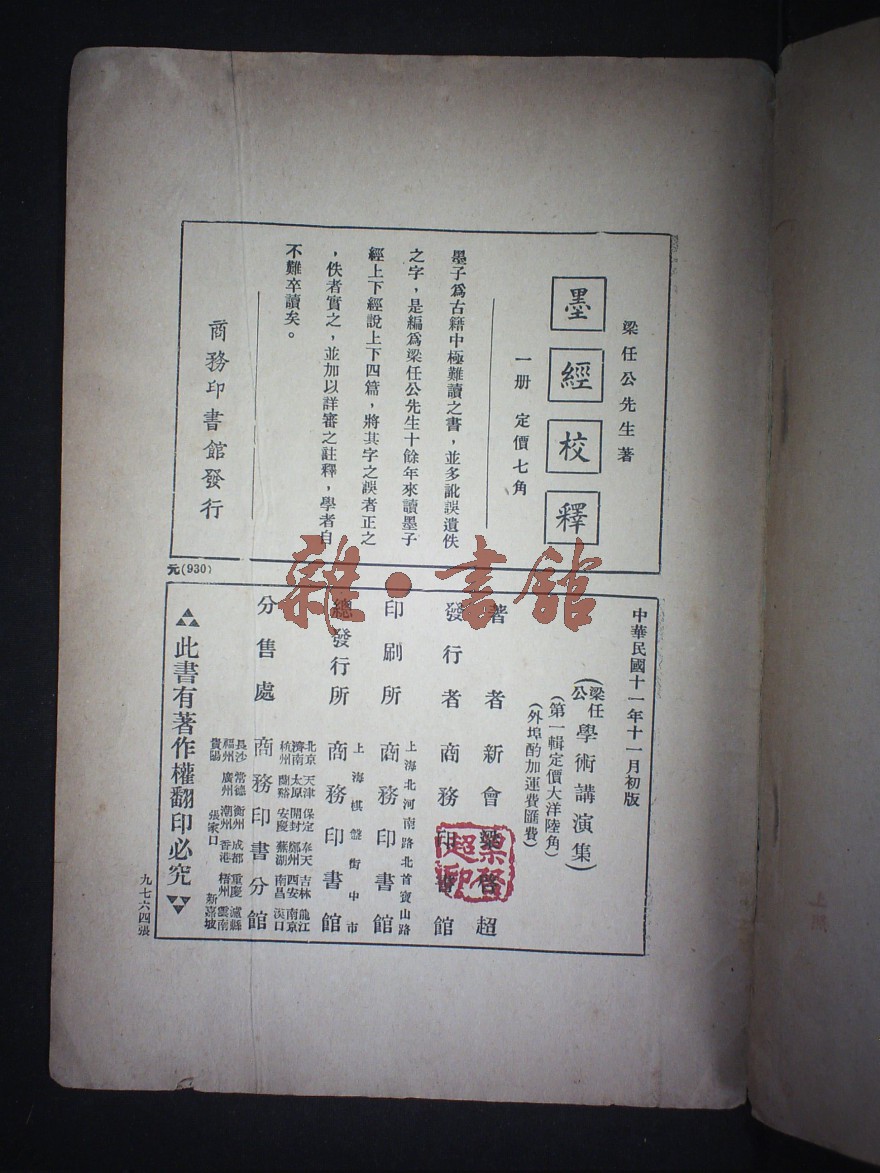 梁任公先生著
墨經校釋
一册 定價七角
墨子爲古籍中極難讀之書，並多訛誤遺佚
之字，是編爲梁任公先生十餘年來讀墨子
經上下經說上下四篇，將其字之誤者正之
，佚者實之，並加以詳審之註釋，學者自
不難卒讀矣。
商務印書館發行
元(930)
雜·書館
中華民國十一年十一月初版
(梁任公 學術講演集)
(第一輯定價大洋陸角)
(外埠酌加運費匯費)
著者 新會梁啓超
梁啓超印
發行者 商務印書館
上海北河南路北首寶山路
印刷所 商務印書館
上海棋盤街中市
總發行所 商務印書館
北京 天津 保定 奉天 吉林 龍江
濟南 太原 開封 鄭州 西安 南京
杭州 蘭谿 安慶 蕪湖 南昌 漢口
分售處 商務印書分館
長沙 常德 衡州 成都 重慶 瀘縣
福州 廣州 潮州 香港 梧州 雲南
貴陽 張家口 新嘉坡
此書有著作權翻印必究
九七六四張